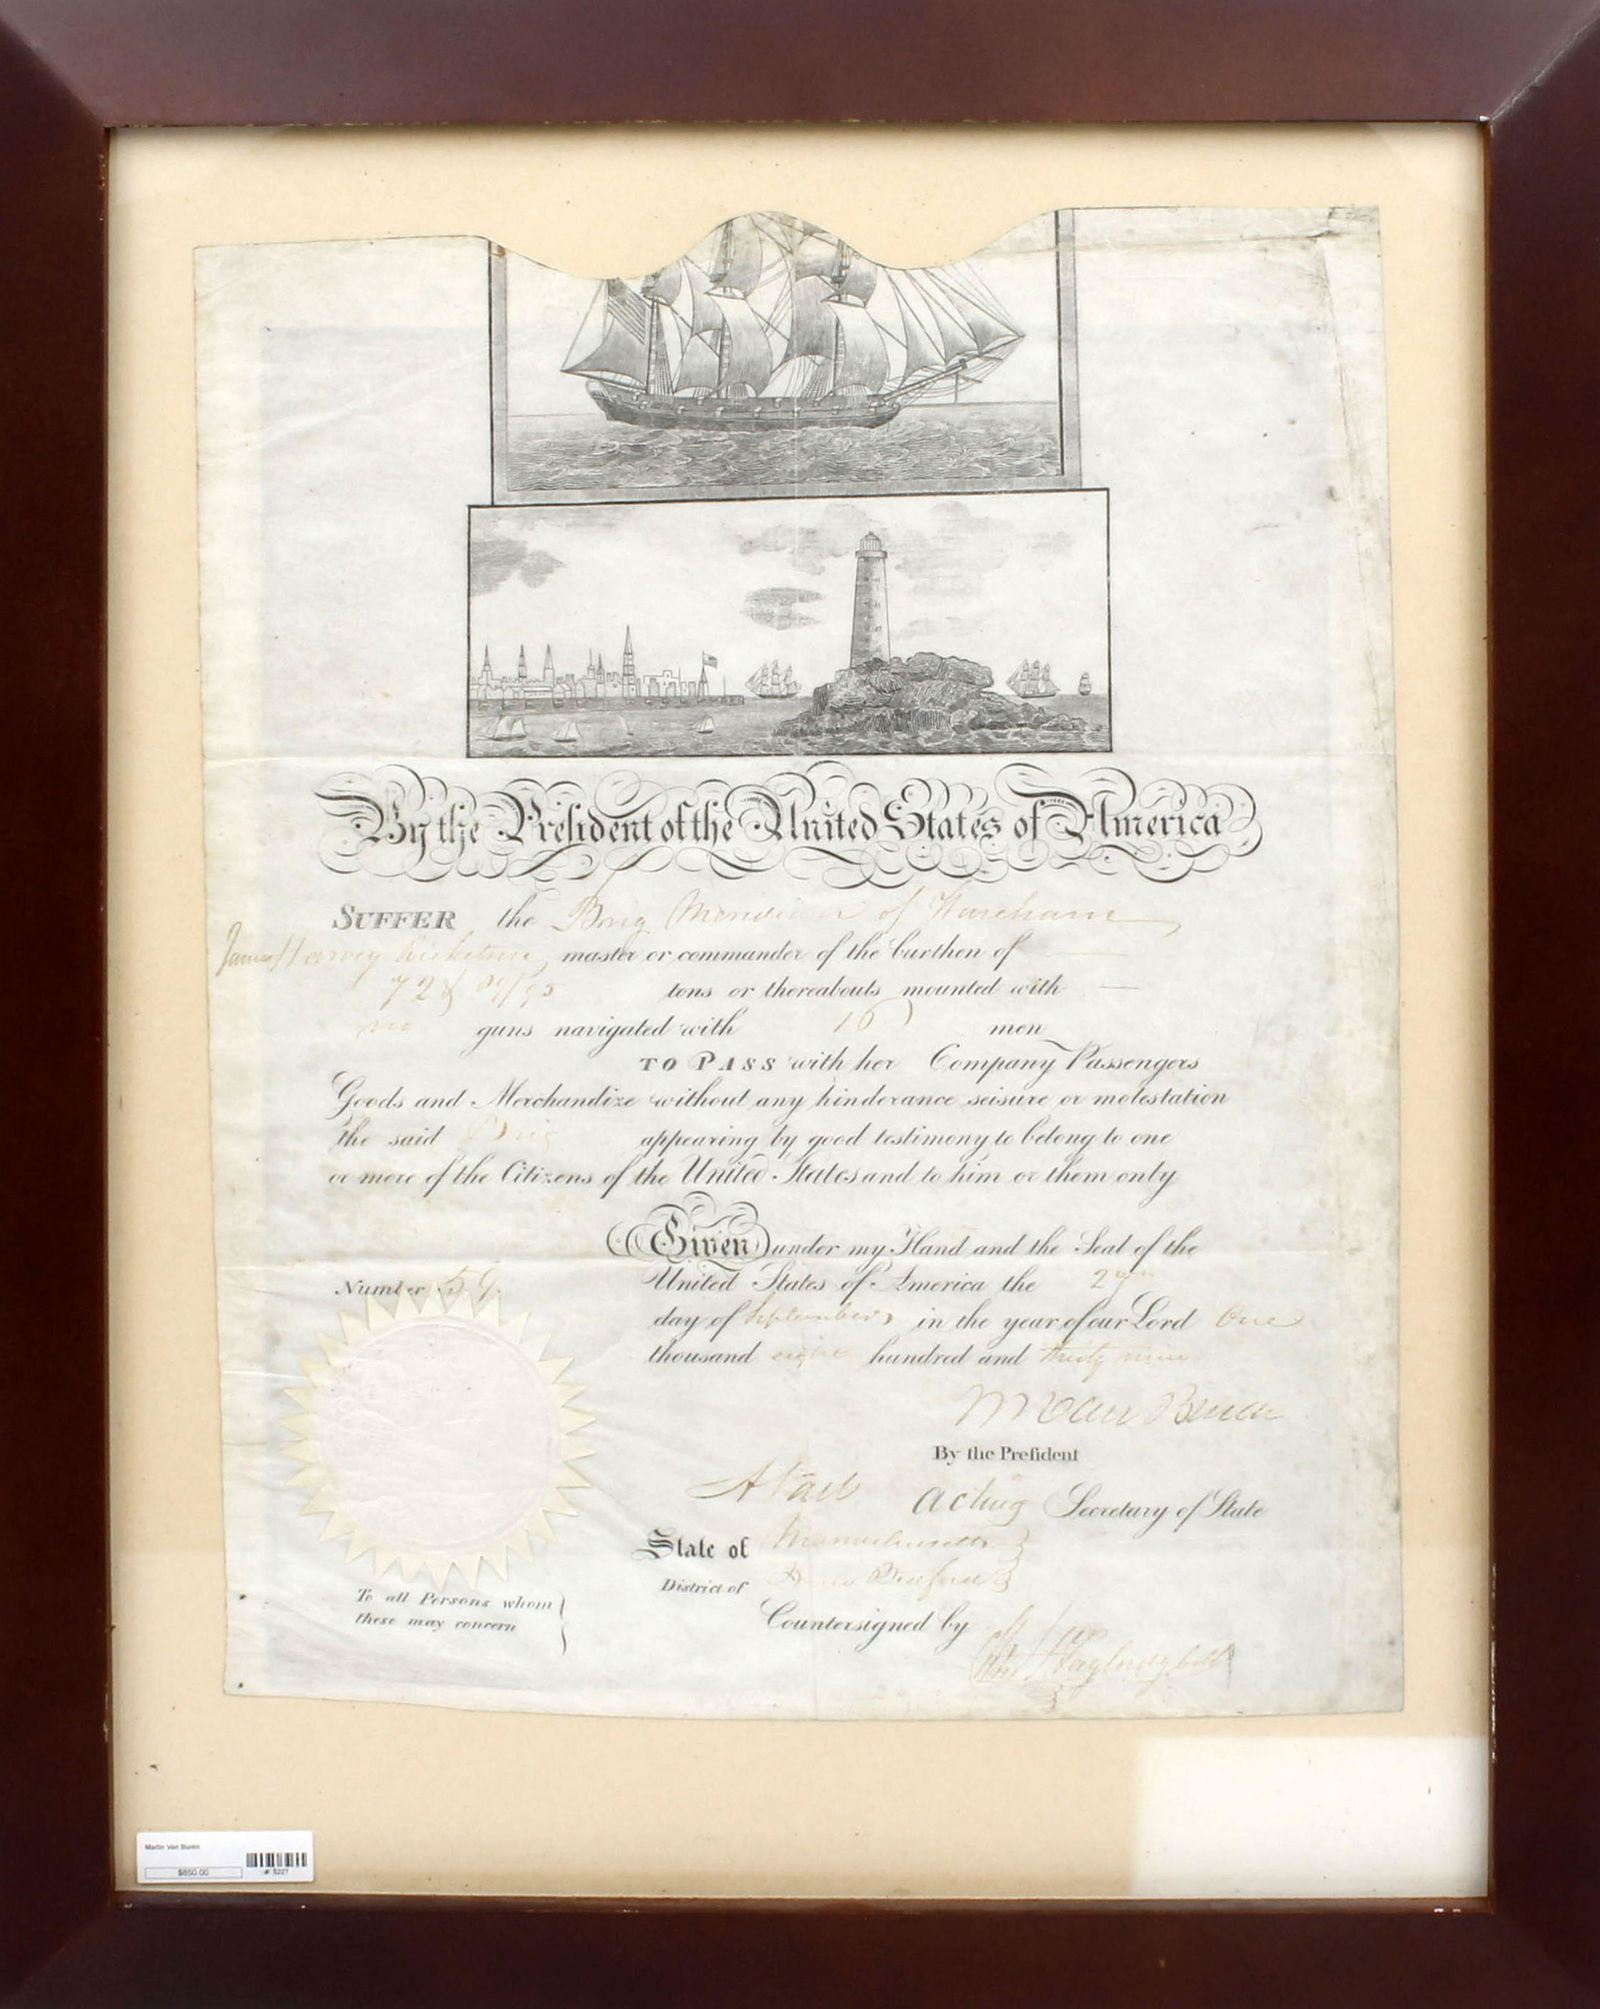 By the President of the United States of America
SUFFER the Brig Meridian of Wareham
James Harvey master or commander of the burthen of
tons or thereabouts mounted with
no guns navigated with 16 men
TO PASS with her Company Passengers
Goods and Merchandize without any hinderance seisure or molestation
the said Brig appearing by good testimony to belong to one
or more of the Citizens of the United States and to him or them only
Given under my Hand and the Seal of the
Number 59. United States of America the
day of September in the year of our Lord One
thousand eight hundred and thirty nine
M Van Buren
By the President
A Vail Acting Secretary of State
State of Massachusetts
District of New Bedford
To all Persons whom
these may concern
Countersigned by
Martin Van Buren
$850.00
5227